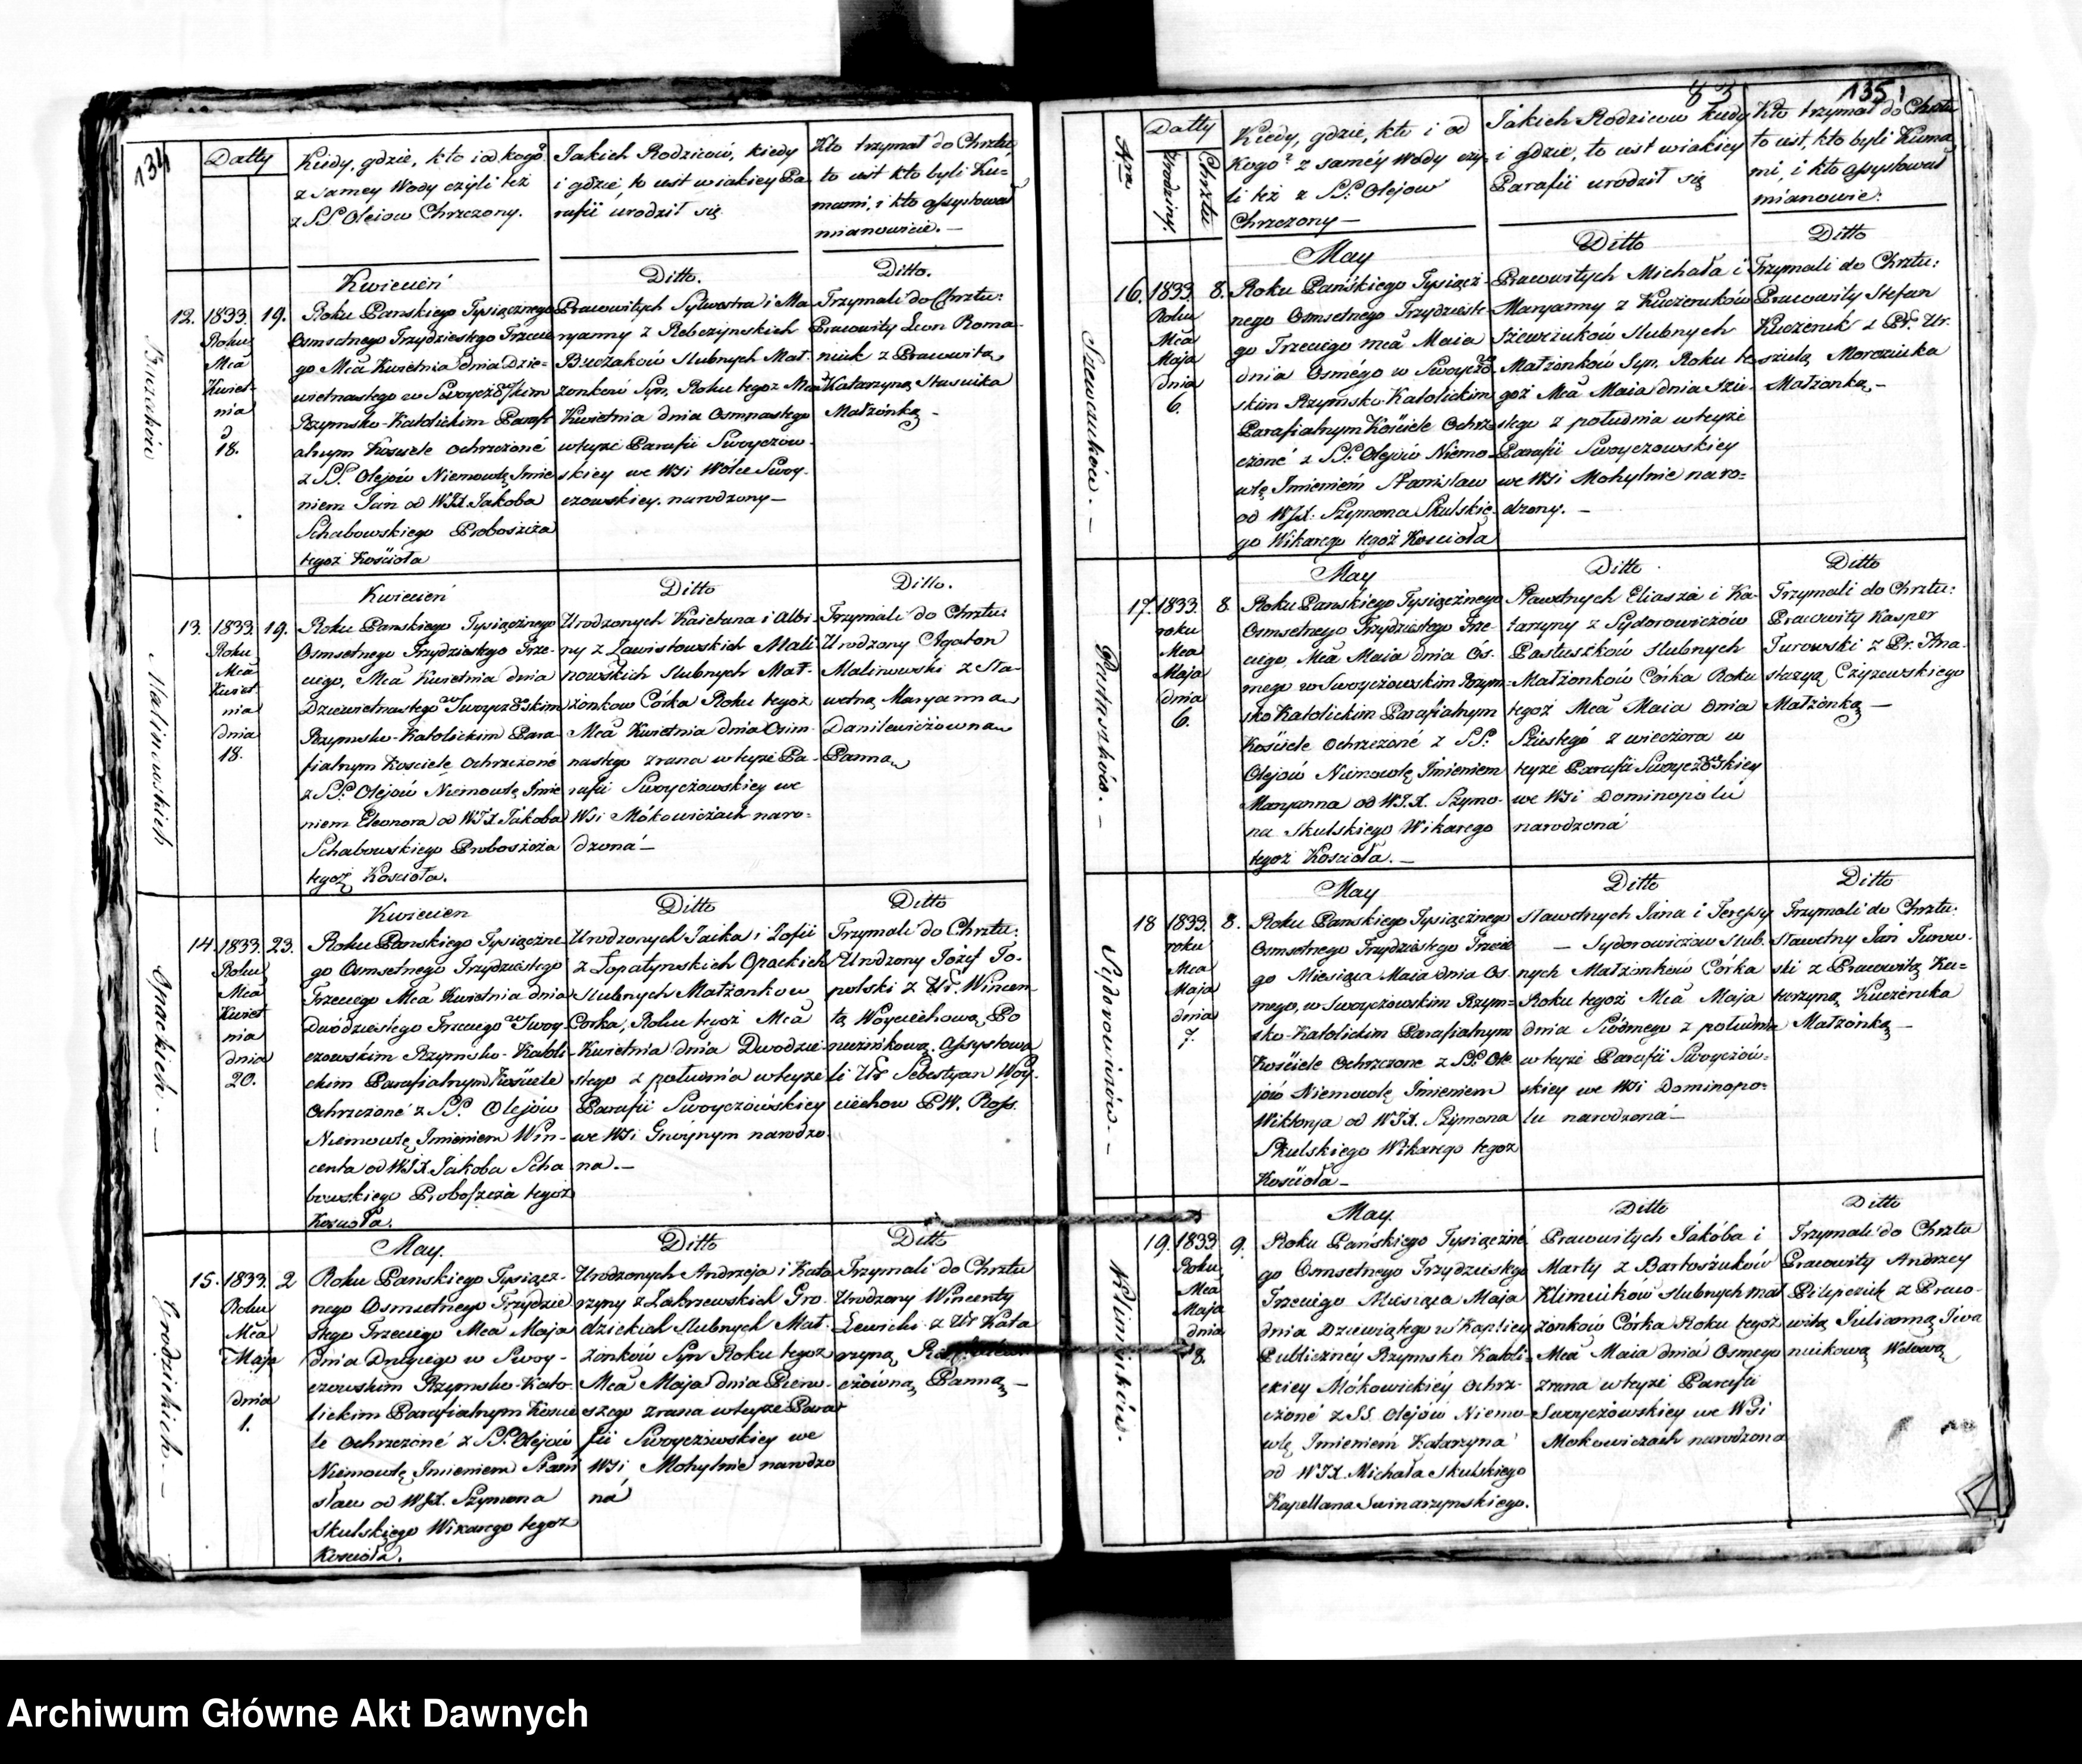 134
Datty
Kiedy, gdzie, kto i od kogo?
z samey Wody czyli też
z SS. Oleiow Chrzczony.
Jakich Rodziców, kiedy
i gdzie, to iest w iakiey Pa
rafii urodził się
Kto trzymał do Chrztu
to iest kto byli Ku=
mami, i kto assystował
mianowicie. —
12.
1833.
Roku
Mca
Kwiet-
nia
d
18.
19.
Kwiecień
Roku Panskiego Tysiącznego
Osmsetnego Trzydziestego Trzecie
go Mca Kwietnia dnia Dzie=
wietnastego w Swoyczowskim
Rzymsko-Katolickim Parafi
alnym Kosciele ochrzczoné
z SS. Olejów Niemowlę Imie
niem Jan od WJX Jakoba
Schabowskiego Proboszcza
tegoż Kościoła
Ditto.
Pracowitych Sylwestra i Ma
ryanny z Rebczynskich
slubnych Mał-
żonkow Syn, Roku tegoż Mca
Kwietnia dnia Osmnastego
w teyże Parafii Swoyczow-
skiey we Wsi Wólce Swoy-
czowskiey, narodzony —
Ditto.
Trzymali do Chrztu:
Pracowity Leon Roma-
niuk z Pracowitą
Katarzyną Stasiuka
Małżonką —
Malinowskich
13.
1833.
Roku
Mca
Kwiet
nia
dnia
18.
19.
Kwiecień
Roku Panskiego Tysiącznego
Osmsetnego Trzydziestego Trze-
ciego, Mca Kwietnia dnia
Dziewietnastego w Swoyczowskim
Rzymsko-Katolickim Para
fialnym Kosciele ochrzczoné
z SS. Olejów Niemowlę Imie
niem Eleonora od WJX Jakoba
Schabowskiego Proboszcza
tegoż Kosciola.
Ditto
Urodzonych Kaietana i Albi-
ny z Zawistowskich Mali
nowskich slubnych Mał-
żonkow Córka Roku tegoż
Mca Kwietnia dnia Osim-
nastego zrana w teyże Pa-
rafii Swoyczowskiey we
Wsi Mókowiczach naro-
dzoná —
Ditto.
Trzymali do Chrztu:
Urodzony Agaton
Malinowski z Sta-
wetną Maryanną
Danilewiczowną
Panną
Opackich. —
14.
1833.
Roku
Mca
Kwiet
nia
dnia
20.
23.
Kwiecien
Roku Panskiego Tysiączne
go Osmsetnego Trzydziestego
Trzeciego Mca Kwietnia dnia
Dwódziestego Trzeciego w Swoy
czowskim Rzymsko-Katoli-
ckim Parafialnym Kościele
Ochrzczoné z SS. Olejów
Niemowlę Imieniem Win-
centa od WJX Jakoba Scha
bowskiego Proboszcza tegoż
Kościoła.
Ditto
Urodzonych Jaika i Zofii
z Łopatynskich Opackich
slubnych Małżonkow
Corka, Roku tegoż Mca
Kwietnia dnia Dwodzie-
stego z południa w teyże
Parafii Swoyczówskiey
we Wsi Gnoynym narodzo
na. —
Ditto
Trzymali do Chrztu:
Urodzony Józef To-
polski z Ur. Wincen-
tą Woyciechową Po
ruczinkową. Assystowa
li Ur Sebestyan Woy-
ciechow P.W. Ross.
Grodzickich. —
15.
1833.
Roku
Mca
Maja
dnia
1.
2
May.
Roku Panskiego Tysiącz-
nego Osmsetnego Trzydzie
stego Trzeciego Mca Maja
dnia Drugiego w Swoy-
czowskim Rzymsko-Kato-
lickim Parafialnym Koscie
le ochrzczoné z SS. Olejów
Niemowlę Imieniem Stani
sław od WJX. Szymona
Skulskiego Wikarego tegoż
Kosciola.
Ditto
Urodzonych Andrzeja i Kata
rzyny z Zakrzewskich Gro-
dzickich slubnych Mał-
żonków Syn Roku tegoż
Mca Maja dnia Pierw-
szego zrana w teyże Para
fii Swoyczowskiey we
Wsi Mohylnie narodzo
ná
Ditto
Trzymali do Chrztu
Urodzony Wincenty
Lewicki z Ur Kata
rzyną
czówną Panną —
83
135
Nra
Datty
Urodziny.
Chrztu
Kiedy, gdzie, kto i od
Kogo? z saméy Wody czy-
li też z SS. Olejow
Chrzczony —
Jakich Rodzicow kiedy
i gdzie, to iest w iakiey
Parafii urodził się
Kto trzymał do Chrztu
to iest, kto byli Kuma
mi, i kto assystował
mianowicie:
Szewczuków. —
16.
1833.
Roku
Mca
Maja
dnia
6.
8.
May
Roku Pańśkiego Tysiącz-
nego Osmsetnego Trzydzieste-
go Trzeciego mca Maia
dnia Osmégo w Swoyczow-
skim Rzymsko-Katolickim
Parafialnym Kościele Ochrz-
czoné z SS. Olejów Niemo-
wlę Imieniem Stanisław
od WJX. Szymona Skulskie-
go Wikarego tegoż Kosciola
Ditto
Pracowitych Michała i
Maryanny z Kucieruków
Szewczuków slubnych
Małżonków Syn, Roku te
goż Mca Maia dnia Szó-
stego z południa w teyże
Parafii Swoyczowskiey
we Wsi Mohylnie naro=
dzony. —
Ditto
Trzymali do Chrztu:
Pracowity Stefan
Kucieruk z Pr. Ur-
szulą Morozuika
Małżonką —
Pastuszków. —
17.
1833.
roku
Mca
Maja
dnia
6.
8.
May
Roku Panskiego Tysiącznego
Osmsetnego Trzydziestego Trze-
ciego, Mca Maia dnia Os-
mego w Swoyczowskim Rzym-
sko Katolickim Parafialnym
Kościele Ochrzczoné z SS:
Olejów Niemowlę Imieniem
Maryanna od WJX. Szymo-
na Skulskiego Wikarego
tegoż Kosciola. —
Ditto
Sławetnych Eliasza i Ka-
tarzyny z Sydorowiczów
Pastuszków slubnych
Małżonków Córka Roku
tegoż Mca Maia dnia
Szóstego z wieczora w
teyże Parafii Swoyczowskiey
we Wsi Dominopolu
narodzoná
Ditto
Trzymali do Chrztu:
Pracowity Kasper
Turowski z Pr. Ana-
stazyą Czyzewskiego
Małżonką —
Sydorowiczów. —
18
1833.
roku
Mca
Maja
dnia
7.
8.
May
Roku Panskiego Tysiącznego
Osmsetnego Trzydziestego Trzecie
go Miesiąca Maia dnia Os-
mego, w Swoyczowskim Rzym=
sko-Katolickim Parafialnym
Kościele Ochrzczone z SS. Ole
jów Niemowlę Imieniem
Wiktorya od WJX. Szymona
Skulskiego Wikarego tegoż
Kościoła —
Ditto
sławetnych Jana i Teressy
— Sydorowiczow slub-
nych Małżonków Córka
Roku tegoż Mca Maja
dnia Siódmego z południa
w teyże Parafii Swoyczów-
skiey we Wsi Dominopo=
lu narodzoná —
Ditto
Trzymali do Chrztu:
Sławetny Jan Turow-
ski z Pracowitą Ka=
tarzyną Kucieruka
Małżonką —
Klimiuków.
19.
1833
Roku
Mca
Maja
dnia
8.
9.
May.
Roku Pańskiego Tysiączne
go Osmsetnego Trzydziestego
Trzeciego Miesiąca Maja
dnia Dziewiątego w Kaplicy
Publiczney Rzymsko Katoli=
ckiey Mókowickiéy ochrz-
czoné z SS. Olejów Niemo-
wlę Imieniem Katarzyna
od WJX. Michała Skulskiego
Kapellana Swinarzynskiego.
Ditto
Pracowitych Jakóba i
Marty z Bartoszuków
Klimiuków slubnych Mał
żonków Córka Roku tegoż
Mca Maia dnia Osmego
zrana w teyże Parafii
Swoyczówskiey we Wsi
Mokowiczach narodzona
Ditto
Trzymali do Chrztu
Pracowity Andrzey
Pilipczuk z Praco-
witą Julianną Iwa
niukową Wdową
Archiwum Główne Akt Dawnych